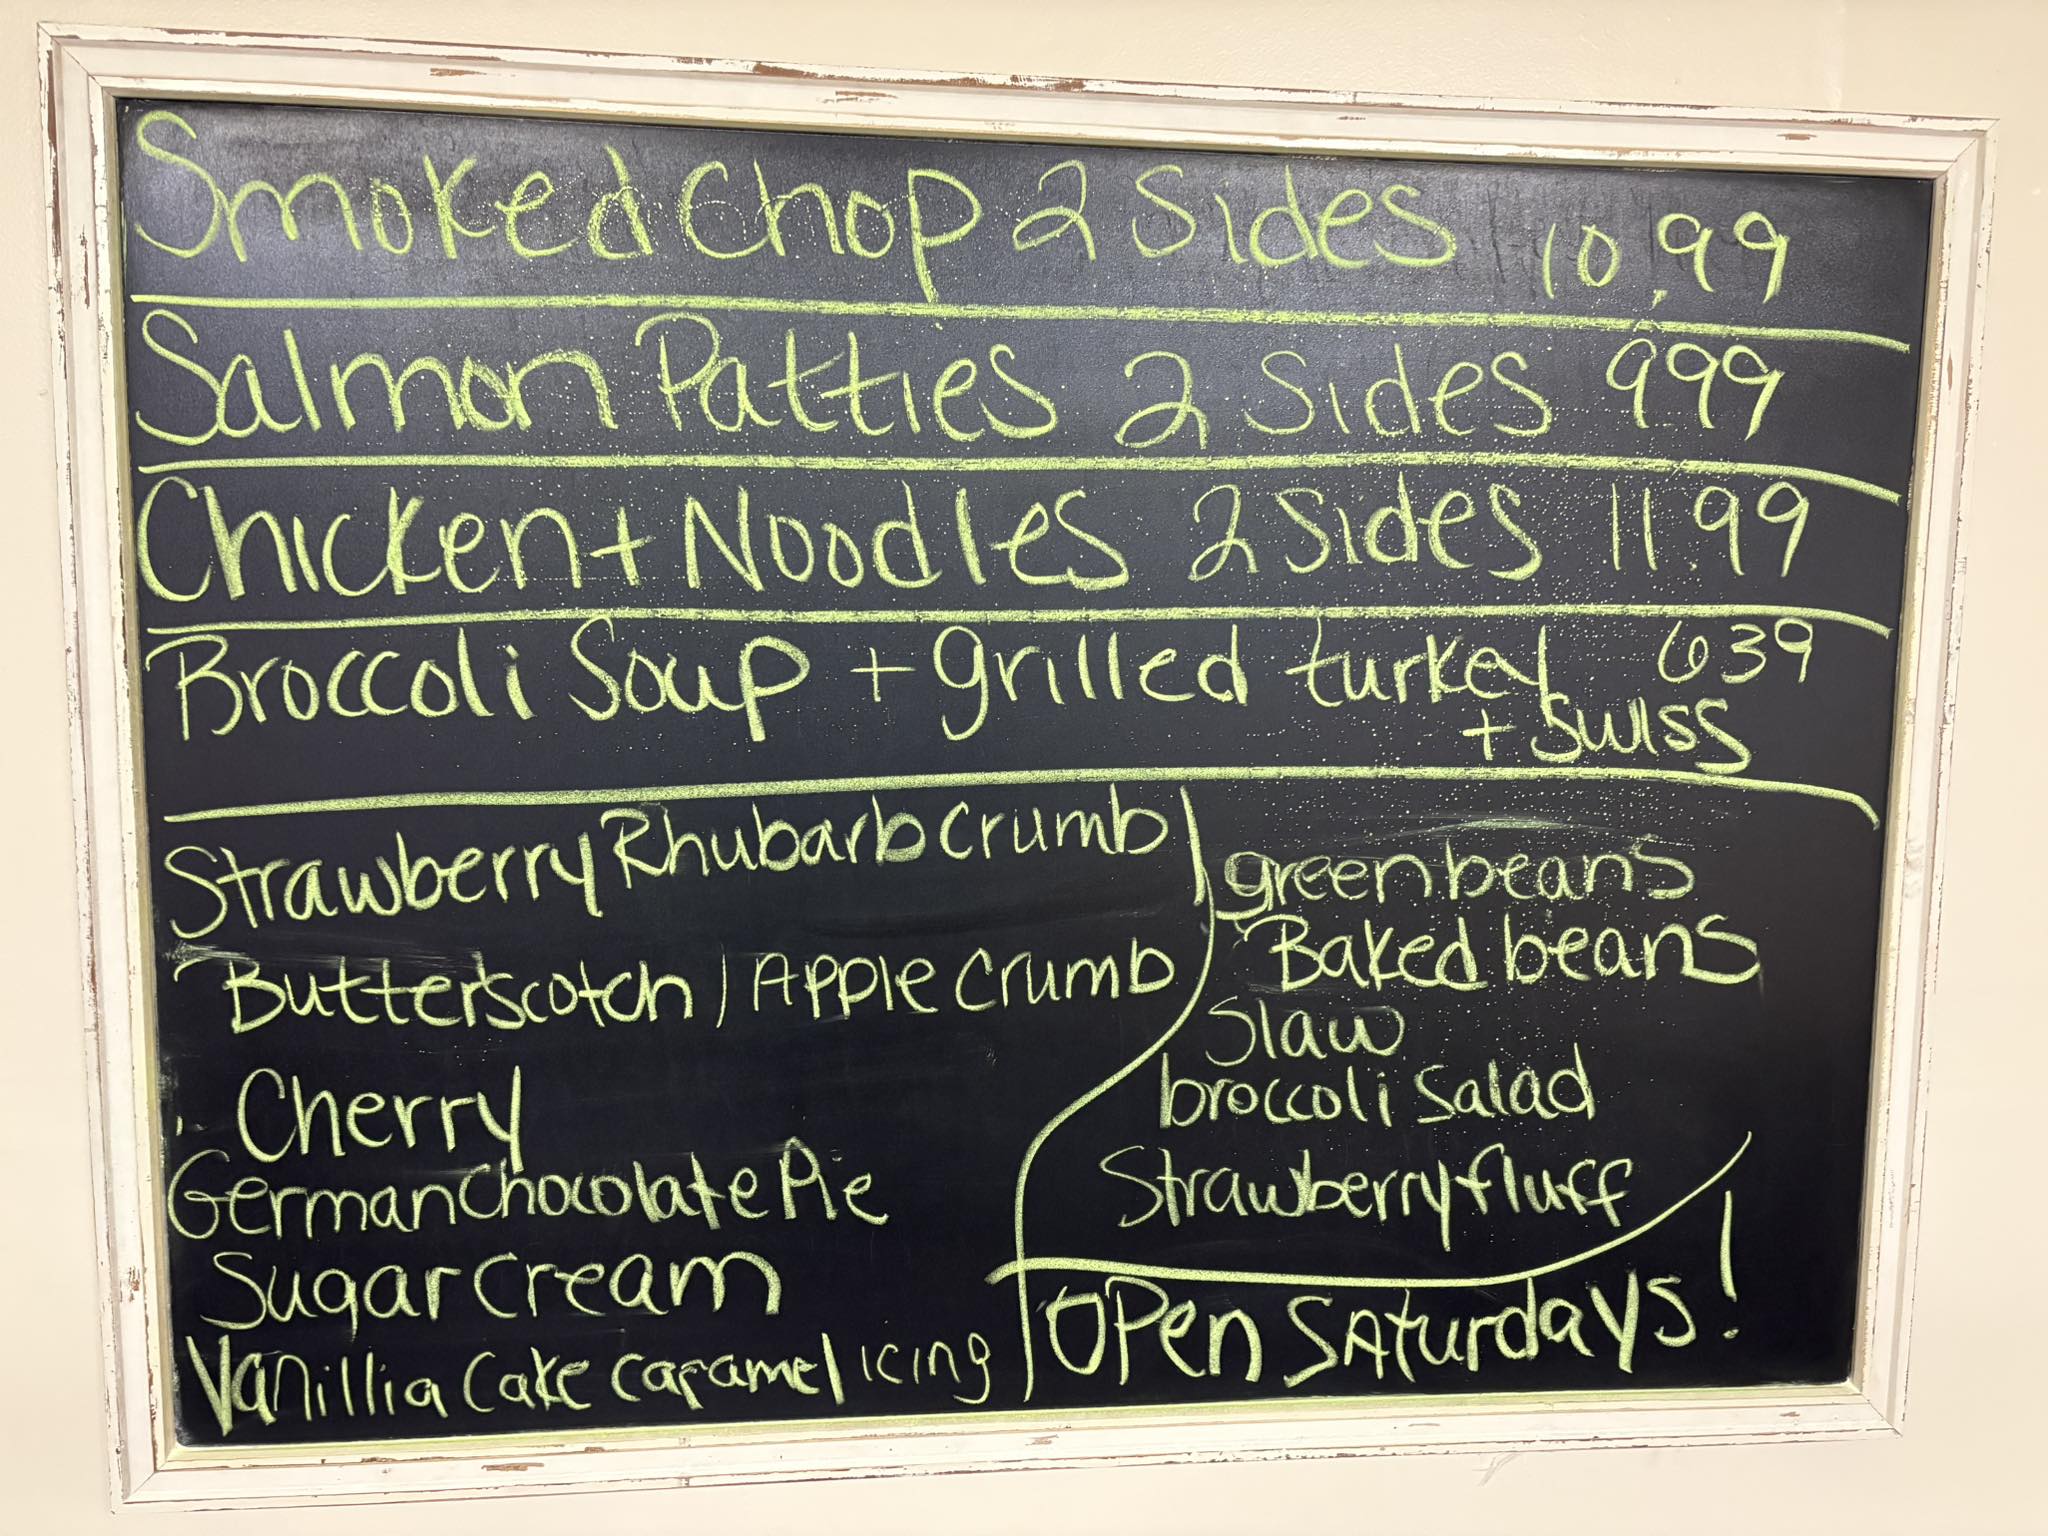 Smoked Chop 2 Sides 10.99
Salmon Patties 2 Sides 999
Chicken + Noodles 2 Sides 11.99
Broccoli Soup + grilled turkey 639
+ Swiss
Strawberry Rhubarb Crumb
Butterscotch / Apple Crumb
Cherry
German Chocolate Pie
Sugar Cream
Vanillia Cake Caramel icing
green beans
Baked beans
Slaw
broccoli Salad
Strawberry fluff
OPen SAturdays!